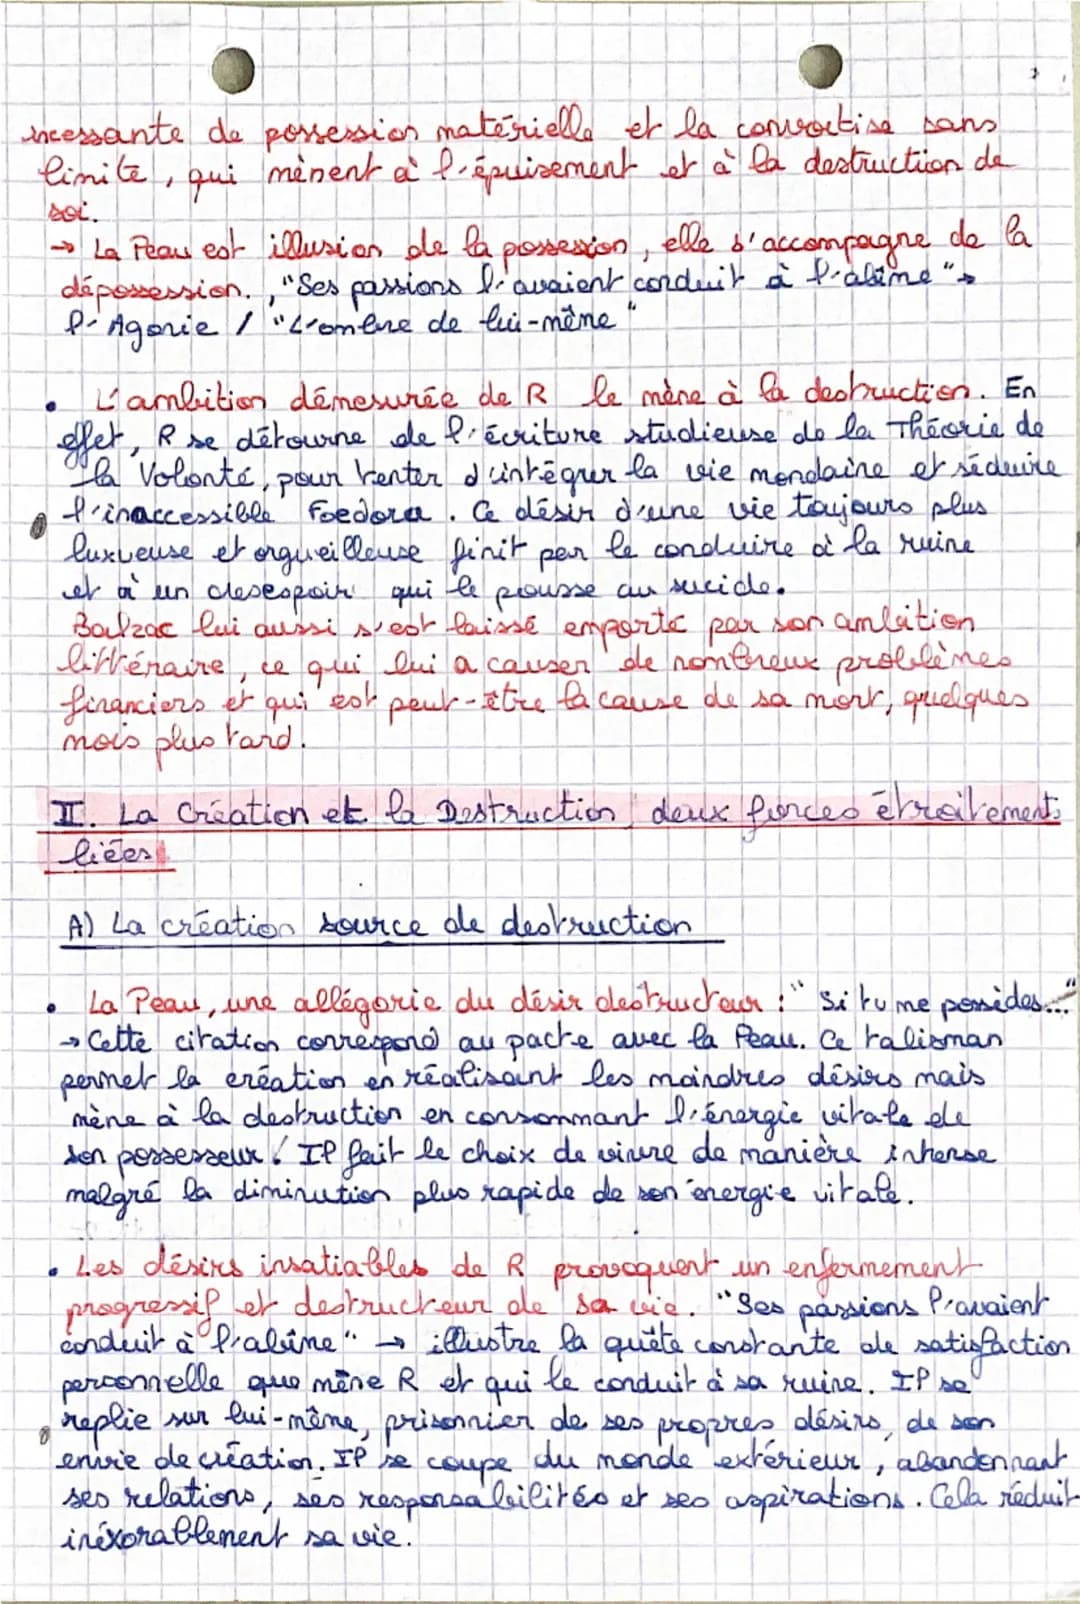 incessante de possession matérielle et la convoitise sans
limite, qui mènent à l'épuisement et à la destruction de
soi.
→ La Peau est illusion de la possession, elle s'accompagne de la
dépossession. , "Ses passions l'avaient conduit à l'abîme" →
l'Agonie / "L'ombre de lui-même"
• L'ambition démesurée de R le mène à la destruction. En
effet, R se détourne de l'écriture studieuse de la Théorie de
la Volonté, pour tenter d'intégrer la vie mondaine et séduire
l'inaccessible Foedora. Ce désir d'une vie toujours plus
luxueuse et orgueilleuse finit par le conduire à la ruine
et à un desespoir qui le pousse au sucide.
Balzac lui aussi s'est laissé emporté par son ambition
littéraire, ce qui lui a causer de nombreux problèmes
financiers et qui est peut-être la cause de sa mort, quelques
mois plus tard.
II. La Création et la Destruction, deux forces étroitements
liées
A) La création source de destruction
• La Peau, une allégorie du désir destructeur : "Si tu me possèdes..."
→ Cette citation correspond au pacte avec la Peau. Ce talisman
permet la création en réalisant les moindres désirs mais
mène à la destruction en consommant l'énergie vitale de
son possesseur. Il fait le choix de vivre de manière intense
malgré la diminution plus rapide de son énergie vitale.
• Les désirs insatiables de R provoquent un enfermement
progressif et destructeur de sa vie. "Ses passions l'avaient
conduit à l'abîme" → illustre la quête constante de satisfaction
personnelle que mène R et qui le conduit à sa ruine. Il se
replie sur lui-même, prisonnier de ses propres désirs, de son
envie de création. Il se coupe du monde extérieur, abandonnant
ses relations, ses responsabilités et ses aspirations. Cela réduit
inéxorablement sa vie.